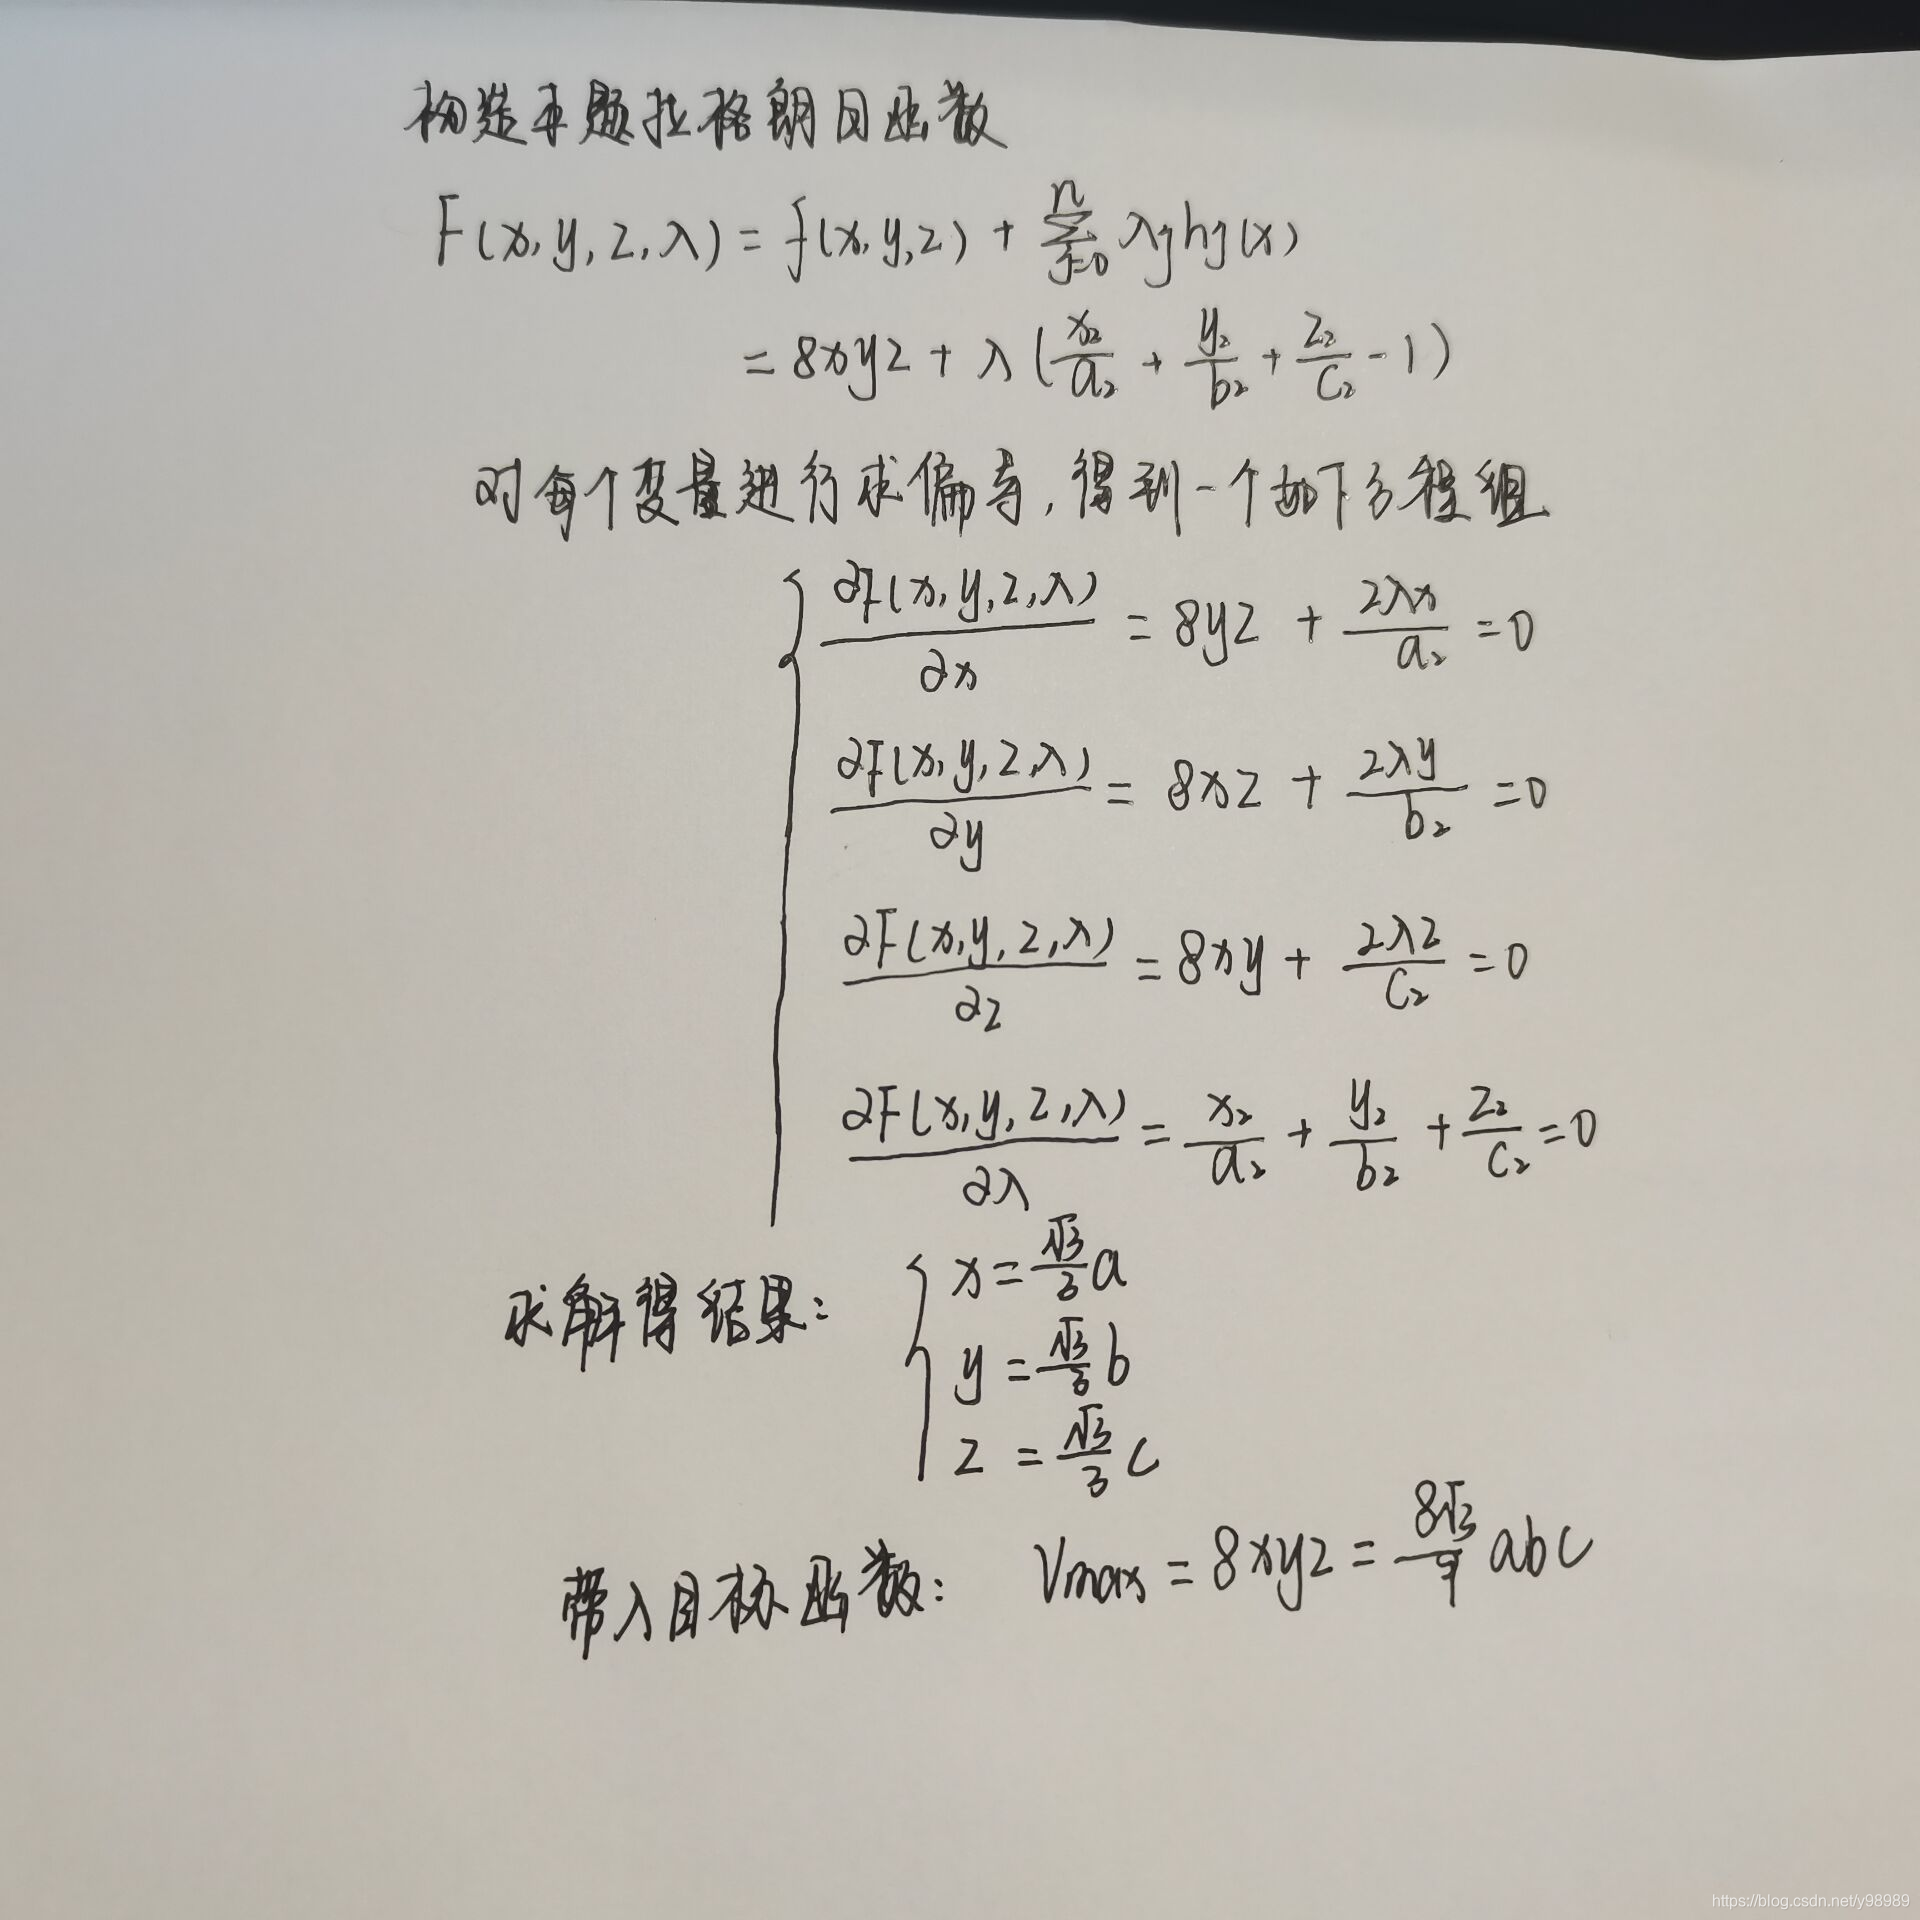 构造本题拉格朗日函数
F(x,y,z,λ) = f(x,y,z) + \sum_{j=0}^{n} λjhj(x)
= 8xyz + λ(\frac{x_2}{a_2} + \frac{y_2}{b_2} + \frac{z_2}{c_2} - 1)
对每个变量进行求偏导,得到一个如下方程组
\frac{∂F(x,y,z,λ)}{∂x} = 8yz + \frac{2λx}{a_2} = 0
\frac{∂F(x,y,z,λ)}{∂y} = 8xz + \frac{2λy}{b_2} = 0
\frac{∂F(x,y,z,λ)}{∂z} = 8xy + \frac{2λz}{c_2} = 0
\frac{∂F(x,y,z,λ)}{∂λ} = \frac{x_2}{a_2} + \frac{y_2}{b_2} + \frac{z_2}{c_2} = 0
求解得结果:
x = \frac{√3}{3}a
y = \frac{√3}{3}b
z = \frac{√3}{3}c
带入目标函数: Vmax = 8xyz = \frac{8√3}{9}abc
https://blog.csdn.net/y98989